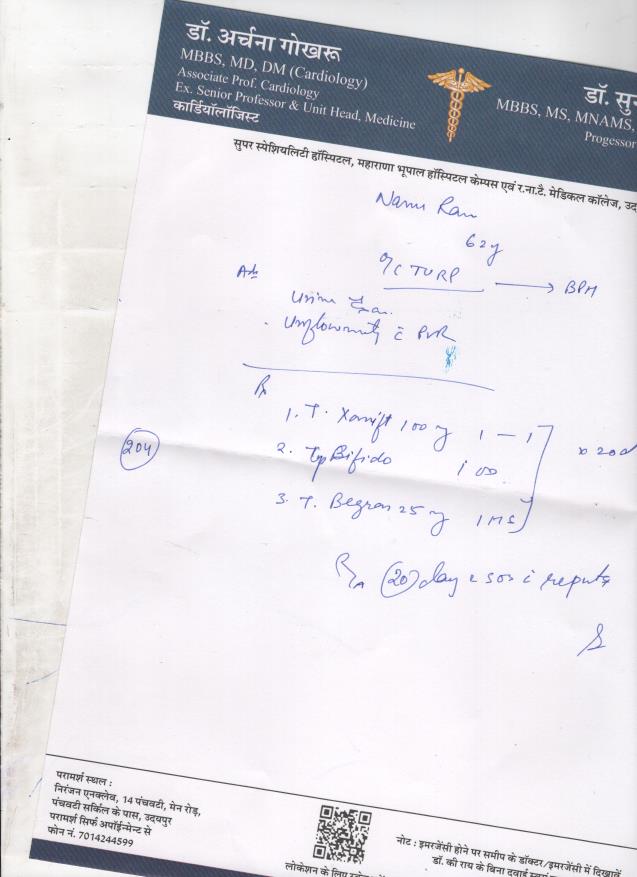 डॉ. अर्चना गोखरू
MBBS, MD, DM (Cardiology)
Associate Prof. Cardiology
Ex. Senior Professor & Unit Head, Medicine
कार्डियॉलॉजिस्ट
डॉ. सु
MBBS, MS, MNAMS,
Progessor
सुपर स्पेशियलिटी हॉस्पिटल, महाराणा भूपाल हॉस्पिटल केम्पस एवं र.ना.टै. मेडिकल कॉलेज, उद
Ram
62y
TURP → BPH
Urine
Uroflowmetry c̄ PVR
Rx
1. T. 100 mg 1 — 1
204
2. Bifido 1 OD
x 20d
3. T. 25 mg 1 HS
(20) day c sos c reports
परामर्श स्थल :
निरंजन एनक्लेव, 14 पंचवटी, मेन रोड़,
पंचवटी सर्किल के पास, उदयपुर
परामर्श सिर्फ अपॉईन्मेन्ट से
फोन नं. 7014244599
नोट : इमरजेंसी होने पर समीप के डॉक्टर/इमरजेंसी में दिखावें
डॉ. की राय के बिना दवाई
लोकेशन के लिए